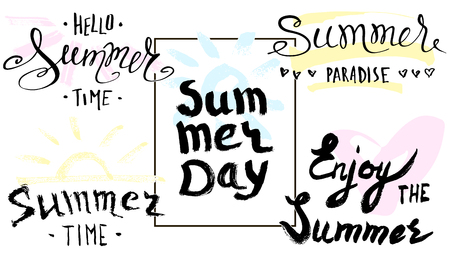 HELLO
Summer
· TIME ·
Summer
PARADISE
Sum
mer
Day
Summer
· TIME ·
Enjoy
THE
Summer